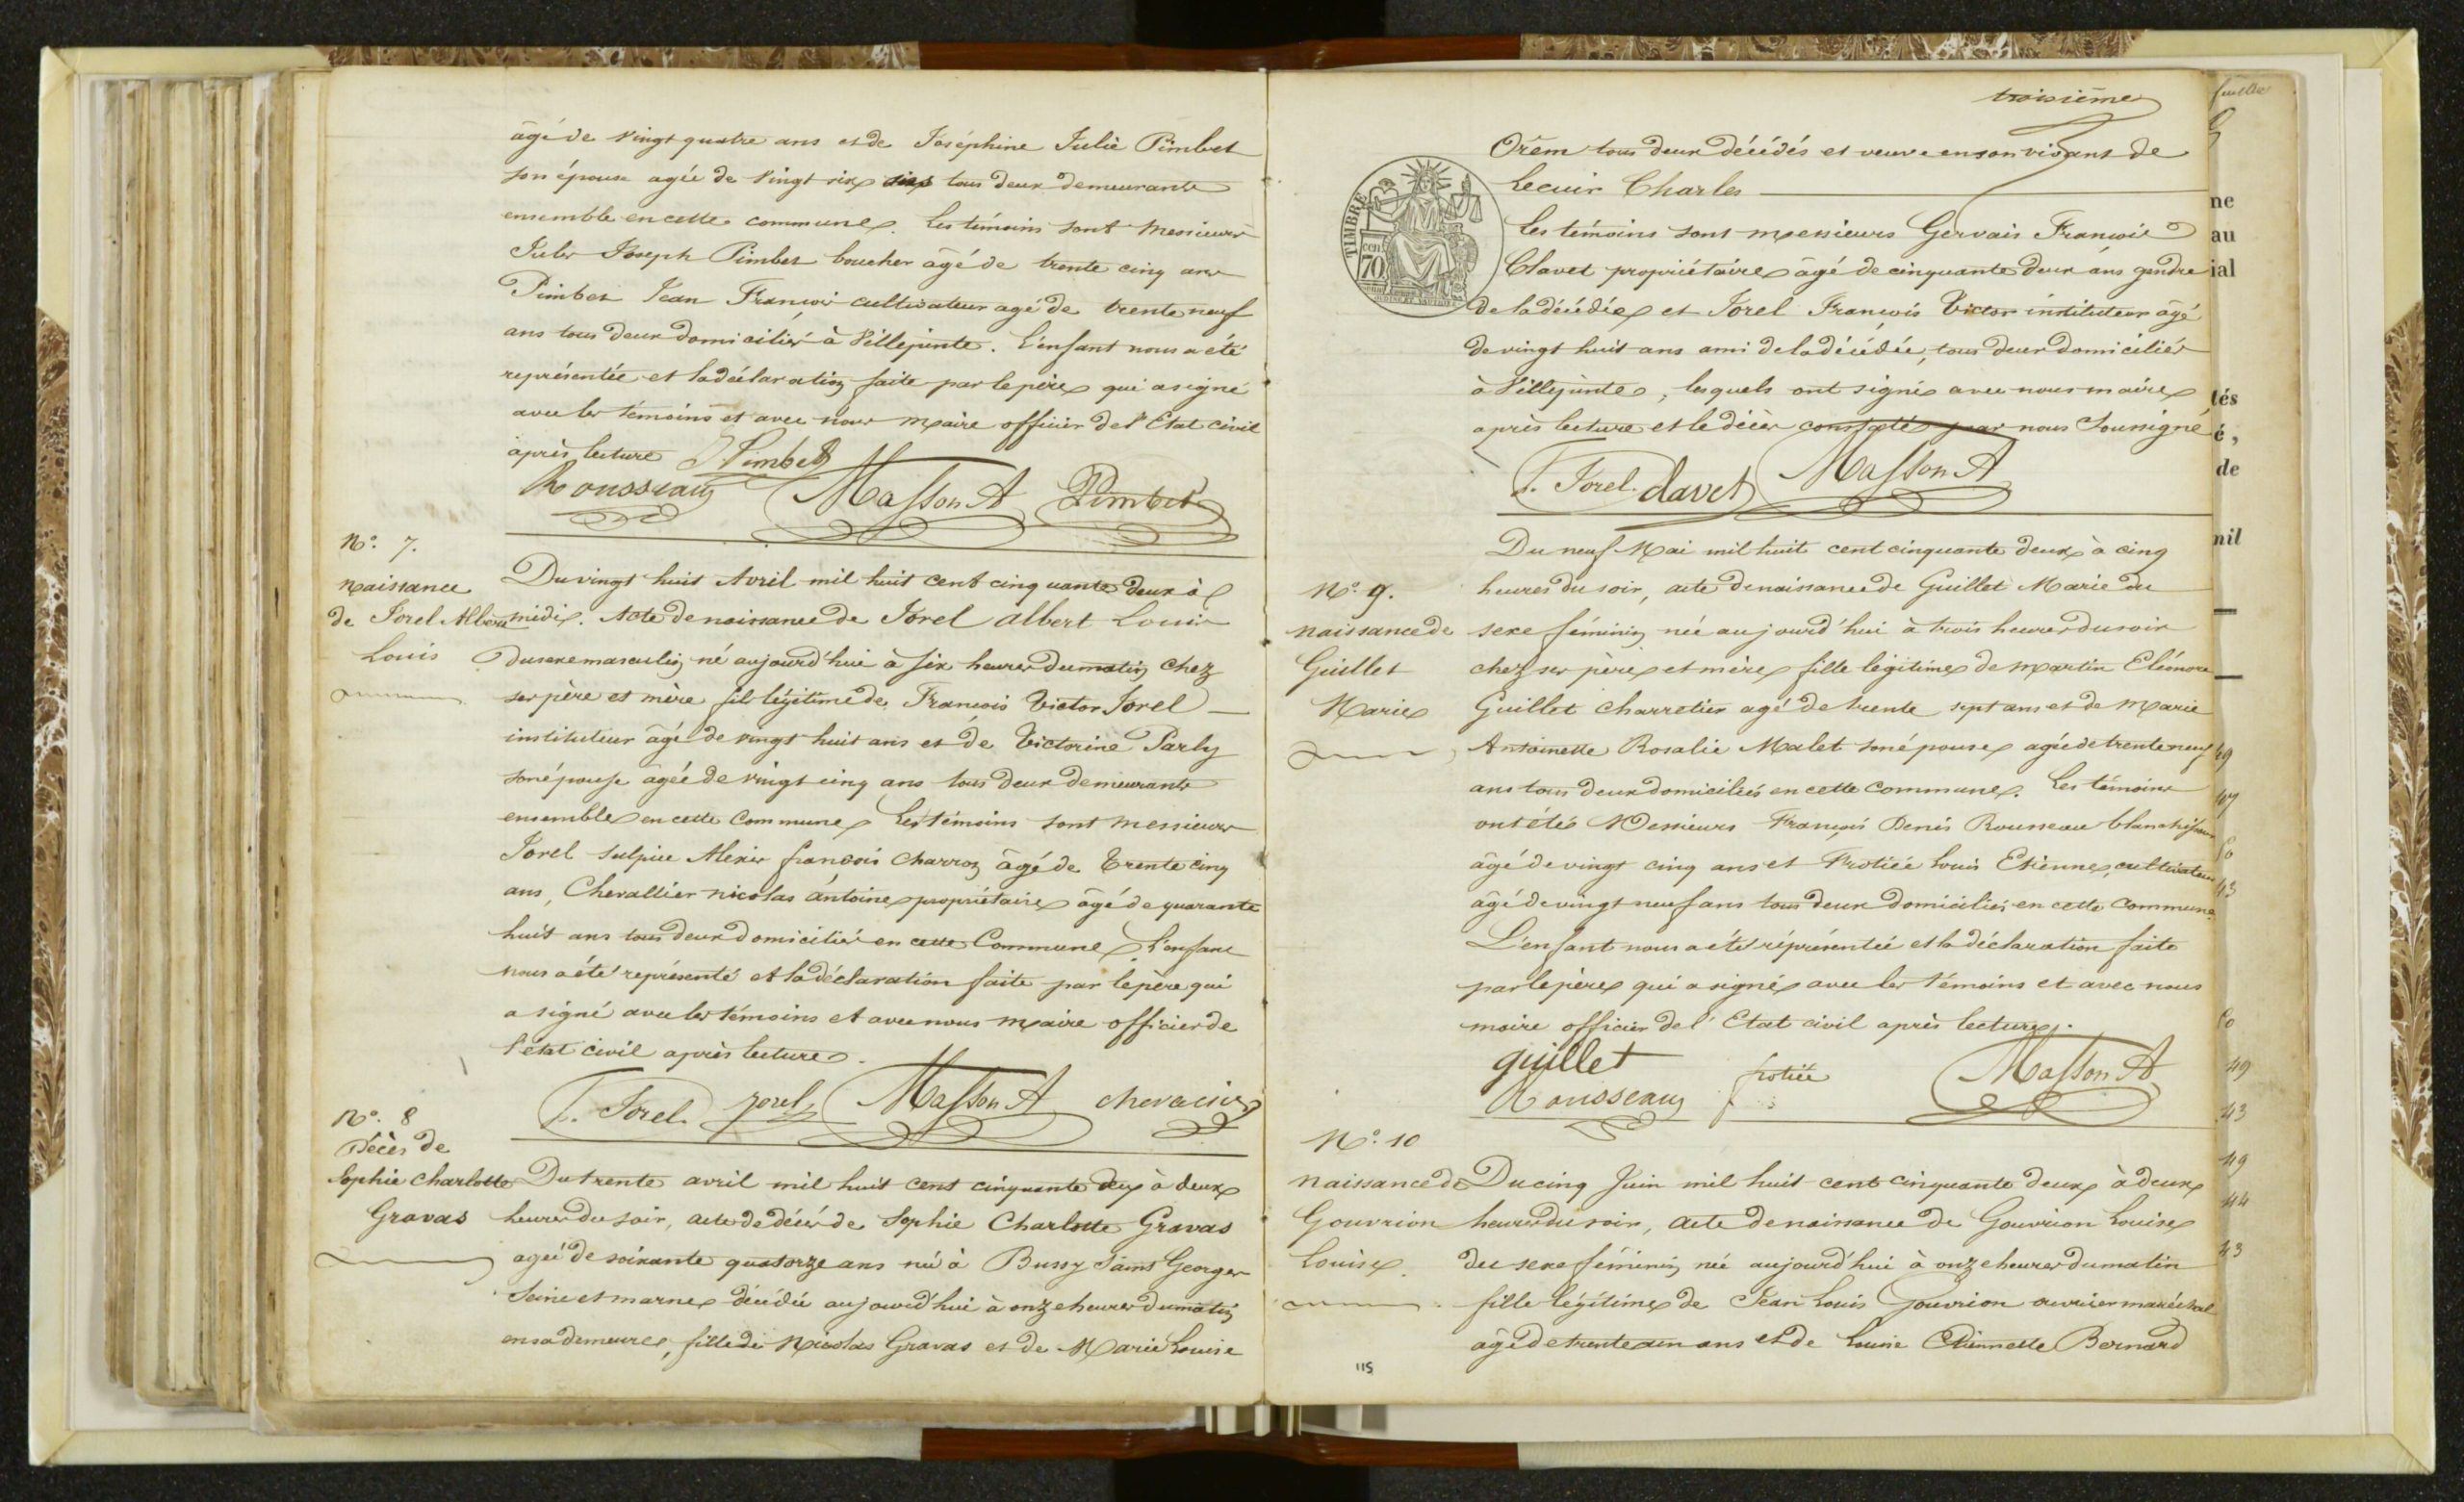 âgé de vingt quatre ans et de Joséphine Julie Pimbet
son épouse agée de vingt six ans tous deux demeurants
ensemble en cette commune. Les témoins sont Messieurs
Jules Joseph Pimbet boucher âgé de trente cinq ans
Pimbet Jean François cultivateur agé de trente neuf
ans tous deux domiciliés à Villejuste. L'enfant nous a été
représentée et la déclaration faite par le père qui a signé
avec les témoins et avec nous maire officier de l'Etat civil
après lecture Pimbet
Rousseau Masson A Pimbet
N°. 7.
naissance
de Jorel Albert
Louis
Du vingt huit Avril mil huit cent cinquante deux à
midi. Acte de naissance de Jorel Albert Louis
du sexe masculin né aujourd'hui à six heures du matin chez
ses père et mère fils légitime de François Victor Jorel
instituteur âgé de vingt huit ans et de Victorine Parly
son épouse âgée de vingt cinq ans tous deux demeurants
ensemble en cette Commune Les témoins sont Messieurs
Jorel Sulpice Alexis françois charron âgé de trente cinq
ans, Chevallier nicolas antoine propriétaire âgé de quarante
huit ans tous deux domiciliés en cette Commune L'enfant
nous a été représenté et la déclaration faite par le père qui
a signé avec les témoins et avec nous maire officier de
l'état civil après lecture.
F. Jorel jorel Masson A
N°. 8
Décès de
Sophie Charlotte
Gravas
Du trente avril mil huit cent cinquante deux à deux
heures du soir, acte de décès de Sophie Charlotte Gravas
agée de soixante quatorze ans née à Bussy Saint Georges
Seine et marne décédée aujourd'hui à onze heures du matin
en sa demeure, fille de Nicolas Gravas et de Marie Louise
115
troisième
feuillet
Orêm tous deux décédés et veuve en son vivant de
Lecuir Charles
TIMBRE
70
Les témoins sont messieurs Gervais François
Clavet propriétaire âgé de cinquante deux ans gendre
de la décédée et Jorel François Victor instituteur âgé
de vingt huit ans ami de la décédée, tous deux domiciliés
à Villejuste, lesquels ont signé avec nous maire
après lecture et le décès constaté par nous soussigné
F. Jorel. Clavet Masson A
N°. 9.
naissance de
Guillet
Marie
Du neuf Mai mil huit cent cinquante deux à cinq
heures du soir, acte de naissance de Guillet Marie du
sexe féminin née aujourd'hui à trois heures du soir
chez ses père et mère fille légitime de Martin Eléonore
Guillet charretier agé de trente sept ans et de Marie
Antoinette Rosalie Malet son épouse agée de trente neuf
ans tous deux domiciliés en cette commune. Les témoins
ont étés Messieurs François Denis Rousseau blanchisseur
âgé de vingt cinq ans et Frotiée Louis Etienne, cultivateur
âgé de vingt neuf ans tous deux domiciliés en cette Commune
L'enfant nous a été réprésentée et la déclaration faite
par le père qui a signé avec les témoins et avec nous
maire officier de l'Etat civil après lecture.
guillet
Rousseau frotiée Masson A
N°. 10
naissance de
Gouvrion
Louise
Du cinq Juin mil huit cent cinquante deux à deux
heures du soir, acte de naissance de Gouvrion Louise
du sexe féminin née aujourd'hui à onze heures du matin
fille légitime de Jean Louis Gouvrion ouvrier maréchal
âgé de trente un ans et de Louise Etiennette Bernard
ne
au
ial
tés
é,
de
nil
49
43
49
44
43